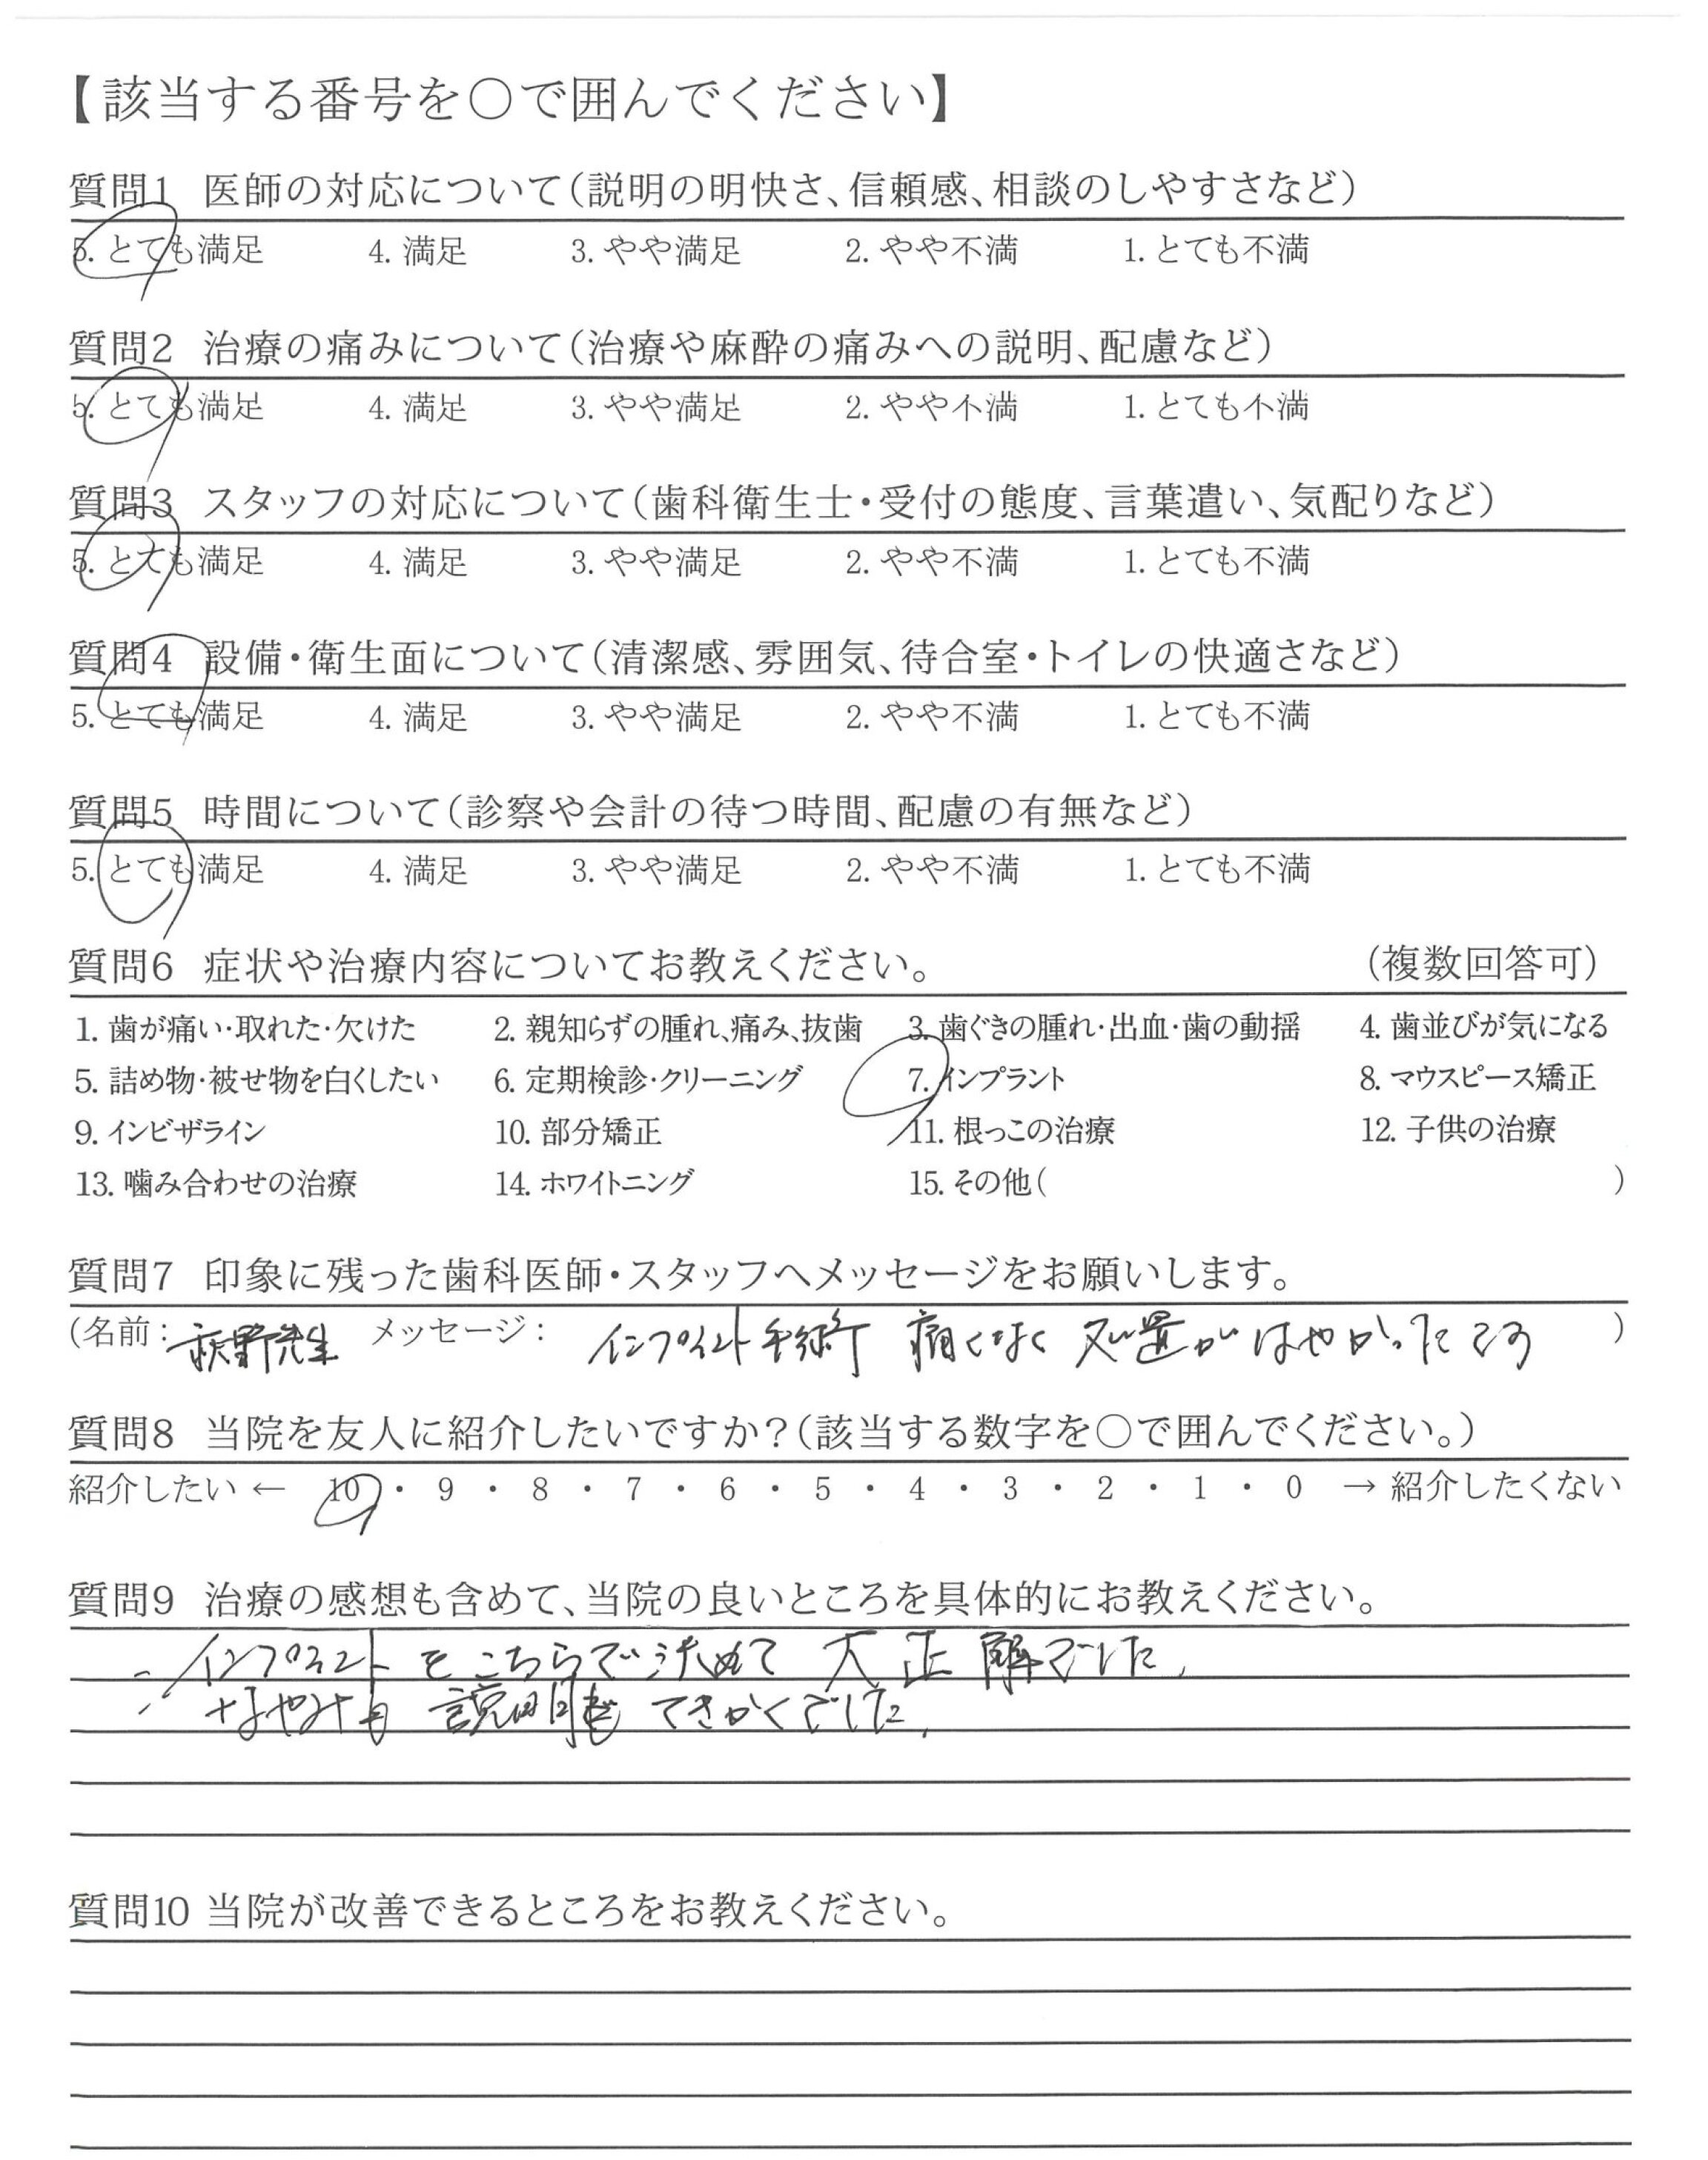 【該当する番号を〇で囲んでください】
質問1 医師の対応について(説明の明快さ、信頼感、相談のしやすさなど)
5. とても満足 4. 満足 3. やや満足 2. やや不満 1. とても不満
質問2 治療の痛みについて(治療や麻酔の痛みへの説明、配慮など)
5. とても満足 4. 満足 3. やや満足 2. やや不満 1. とても不満
質問3 スタッフの対応について(歯科衛生士・受付の態度、言葉遣い、気配りなど)
5. とても満足 4. 満足 3. やや満足 2. やや不満 1. とても不満
質問4 設備・衛生面について(清潔感、雰囲気、待合室・トイレの快適さなど)
5. とても満足 4. 満足 3. やや満足 2. やや不満 1. とても不満
質問5 時間について(診察や会計の待つ時間、配慮の有無など)
5. とても満足 4. 満足 3. やや満足 2. やや不満 1. とても不満
質問6 症状や治療内容についてお教えください。 (複数回答可)
1. 歯が痛い・取れた・欠けた 2. 親知らずの腫れ、痛み、抜歯 3. 歯ぐきの腫れ・出血・歯の動揺 4. 歯並びが気になる
5. 詰め物・被せ物を白くしたい 6. 定期検診・クリーニング 7. インプラント 8. マウスピース矯正
9. インビザライン 10. 部分矯正 11. 根っこの治療 12. 子供の治療
13. 噛み合わせの治療 14. ホワイトニング 15. その他( )
質問7 印象に残った歯科医師・スタッフへメッセージをお願いします。
(名前: 先生 メッセージ: インプラント手術 痛くなく 処置がはやかったです )
質問8 当院を友人に紹介したいですか?(該当する数字を〇で囲んでください。)
紹介したい ← 10 ・ 9 ・ 8 ・ 7 ・ 6 ・ 5 ・ 4 ・ 3 ・ 2 ・ 1 ・ 0 → 紹介したくない
質問9 治療の感想も含めて、当院の良いところを具体的にお教えください。
インプラントをこちらで決めて 大正解でした。
説明も てきかくでした。
質問10 当院が改善できるところをお教えください。